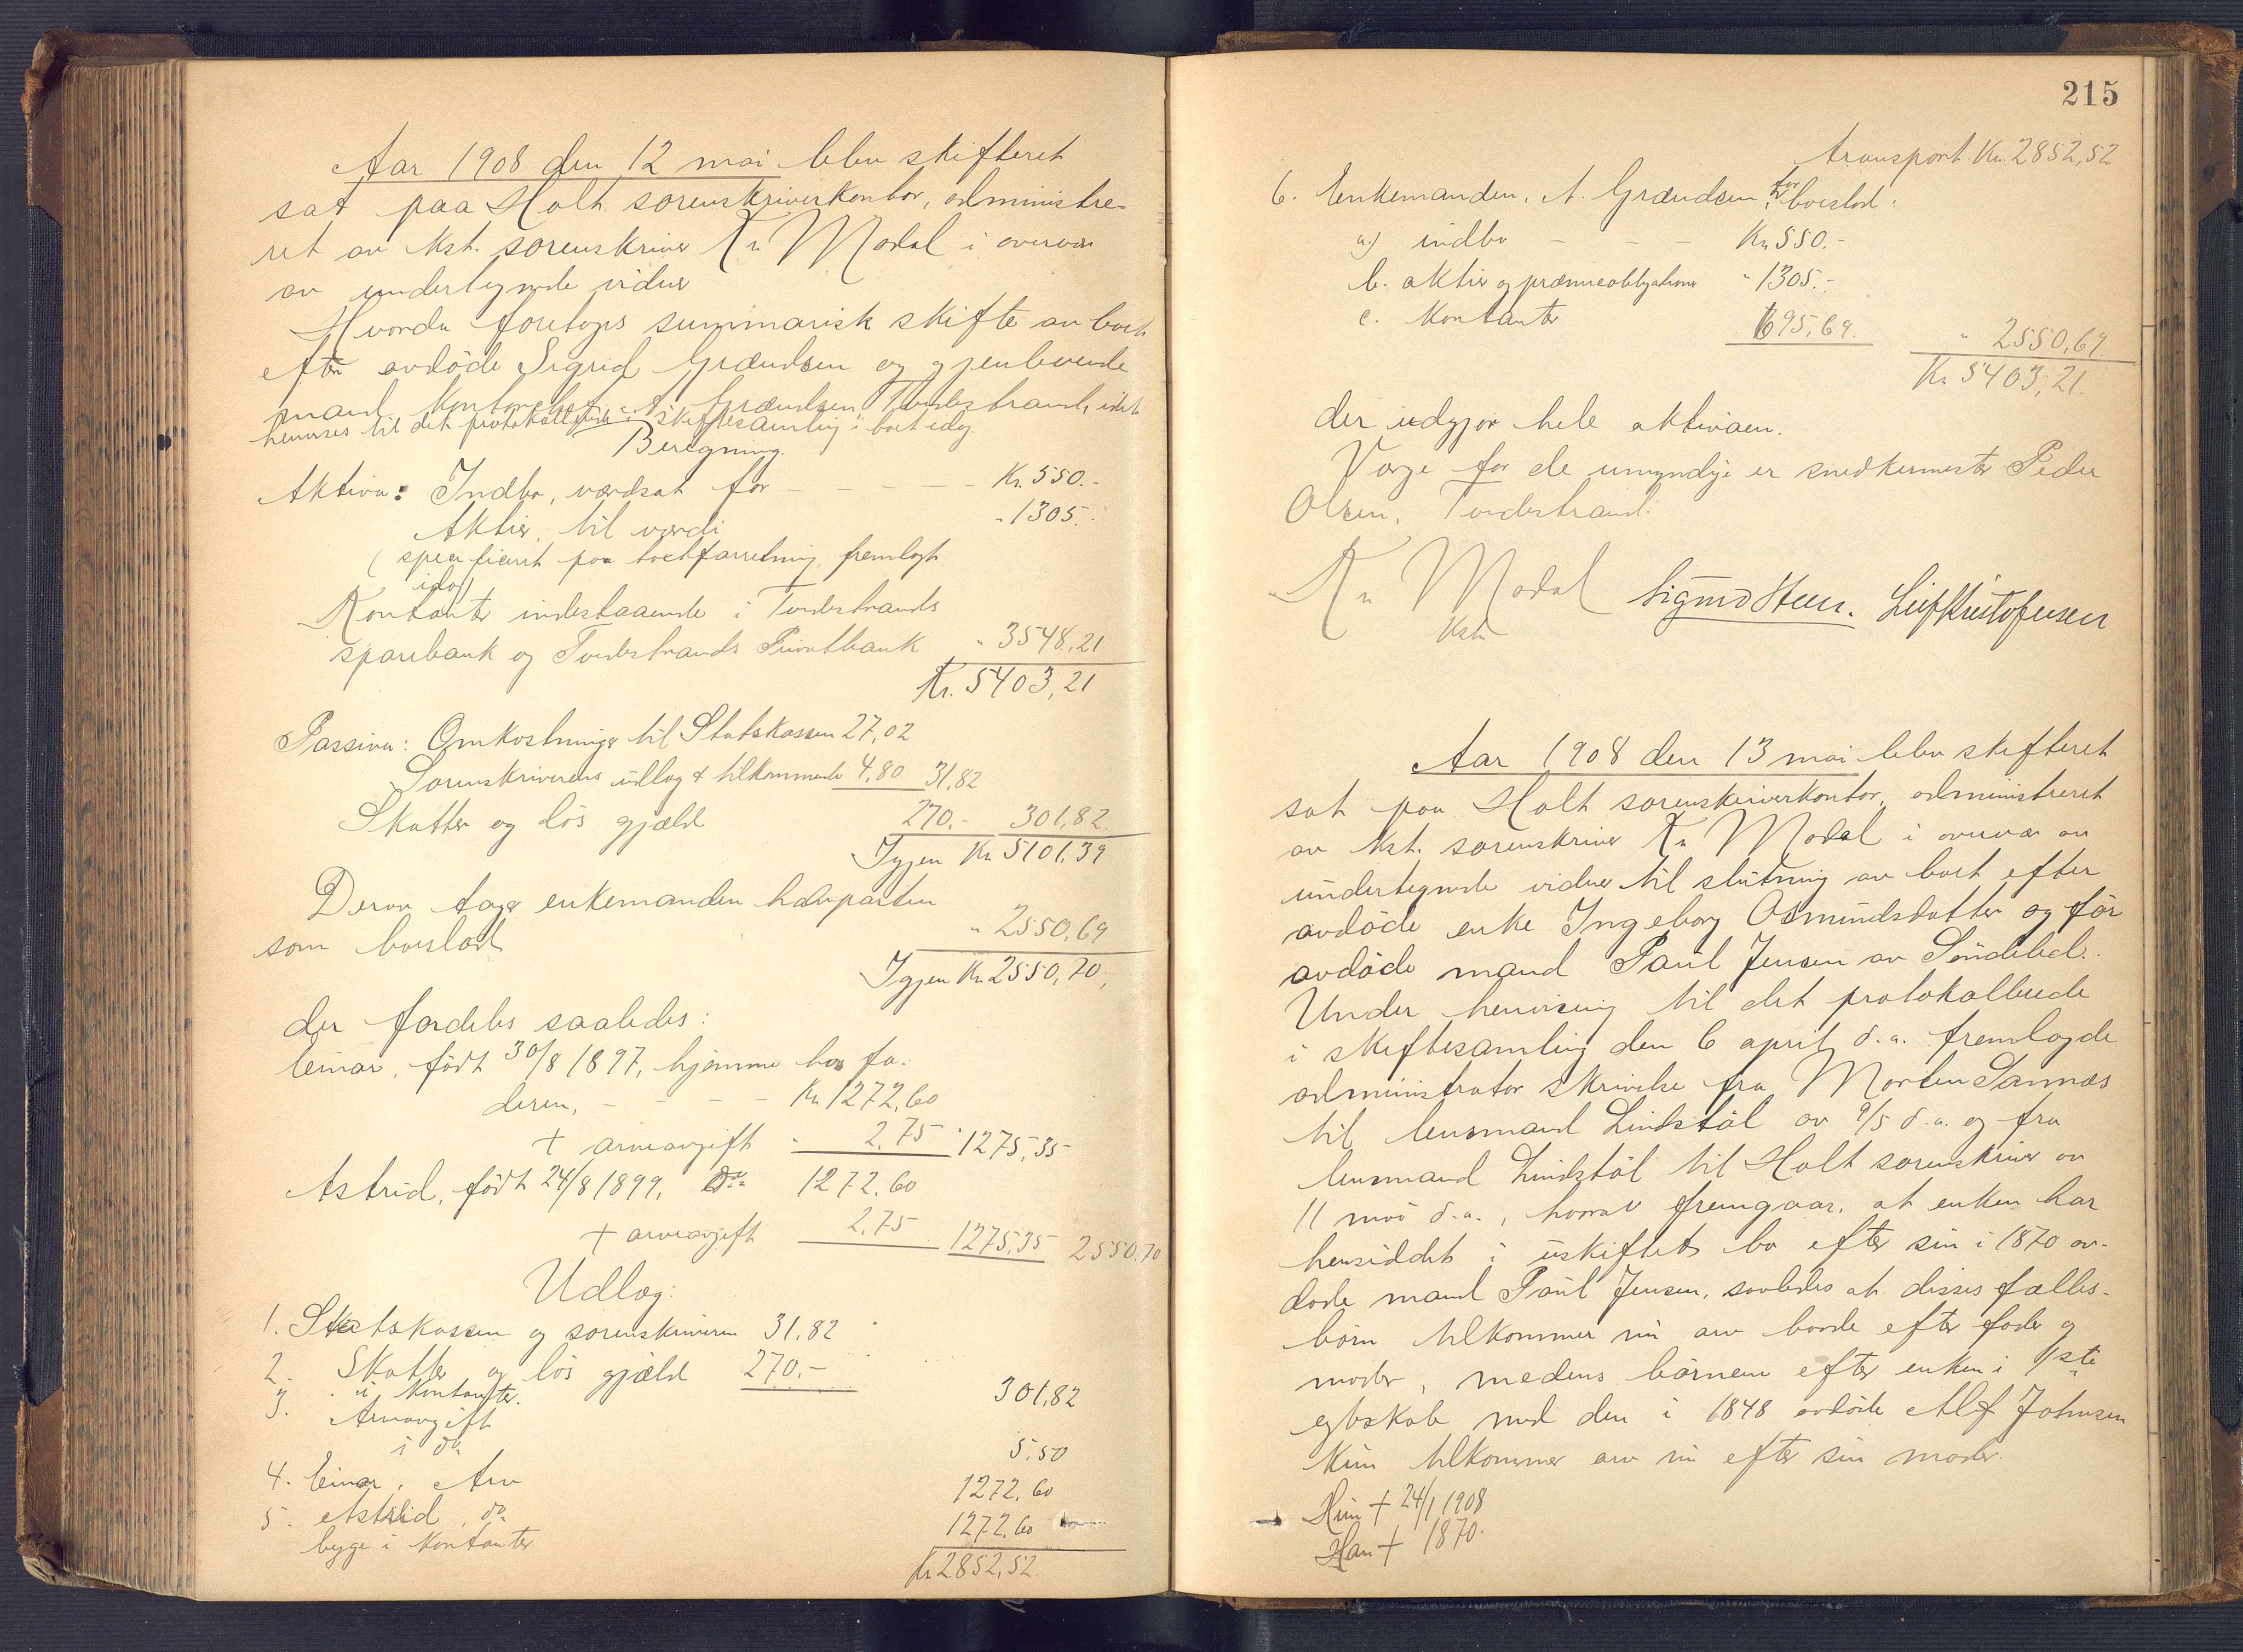 Aar 1908 den 12 mai blev skifteret
sat paa Holt sorenskriverkontor, administre-
ret av kst. sorenskriver Kr Modal i overvær
av undertegnede vidner
Hvorda foretoges summarisk skifte av boet
efter avdøde Sigrid Grændsen og gjenlevende
mand, kontorchef A. Grændsen, Tvedestrand, idet
henvises til det protokollerede i skiftesamling i boet idag.
Beregning.
Aktiva: Indbo, værdsat for - - - - - Kr. 550.-
Aktier, til værdi " 1305.-
(specificeret paa boetforretning, fremlagt
idag)
Kontanter indestaaende i Tvedestrands
sparebank og Tvedestrands Privatbank " 3548,21
Kr. 5403,21
Passiva: Omkostninger til Statskassen 27,02
Sorenskriverens utlæg & tilkommende 4,80 31,82
Skatter og løs gjæld 270.- 301,82
Igjen Kr. 5101,39
Derav tager enkemanden halvparten
som boeslod " 2550,69
Igjen Kr. 2550,70,
der fordeles saaledes:
Einar, født 30/8 1897, hjemme hos fa-
deren, - - - - Kr. 1272,60
+ arveavgift " 2,75 " 1275,35
Astrid, født 24/8 1899, do 1272,60
+ arveavgift 2,75 1275,35 2550,70
Udlæg:
1. Statskassen og sorenskriveren 31,82
2. Skatter og løs gjæld 270.-
i kontanter. 301,82
3. Arveavgift
i do 5,50
4. Einar, Arv 1272,60
5. Astrid, do 1272,60
begge i kontanter
Kr. 2852,52.
215
Transport. Kr. 2852,52
6. Enkemanden, A. Grændsen, for boeslod:
a.) indbo - - - Kr. 550.-
b. aktier og præmieobligationer " 1305.-
c. Kontanter 695,69. " 2550,69.
Kr. 5403,21.
der udgjør hele aktivaen.
Værge for de umyndige er snedkermester Peder
Olsen, Tvedestrand.
Kr Modal Sigurd Steen. Leif Kristofersen
kst.
Aar 1908 den 13 mai blev skifteret
sat paa Holt sorenskriverkontor, administreret
av kst. sorenskriver Kr Modal i overvær av
undertegnede vidner til slutning av boet efter
avdøde enke Ingeborg Osmundsdatter og før
avdøde mand Paul Jensen av Søndeled.
Under henvisning til det protokollerede
i skiftesamling den 6 april d.a. fremlagde
administrator skrivelse fra Morten Sannæs
til lensmand Lindstøl av 9/5 d.a. og fra
lensmand Lindstøl til Holt sorenskriver av
11 mai d.a., hvorav fremgaar, at enken har
hensiddet i uskiftet bo efter sin i 1870 av-
døde mand Paul Jensen, saaledes at disses fælles-
børn tilkommer nu arv baade efter fader og
moder, medens børnene efter enken i 1ste
egteskab med den i 1848 avdøde Alef Johnsen
kun tilkommer arv nu efter sin moder.
Hun + 24/1 1908
Han + 1870.